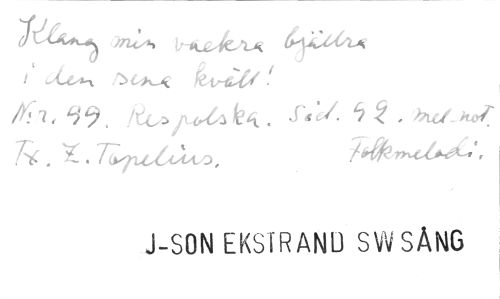 Klang min vackra bjällra
i den sena kväll!
N:r. 99. Respolska. Sid. 92. mel-not.
Tx. Z. Topelius. Folkmelodi.
J-SON EKSTRAND SW SÅNG